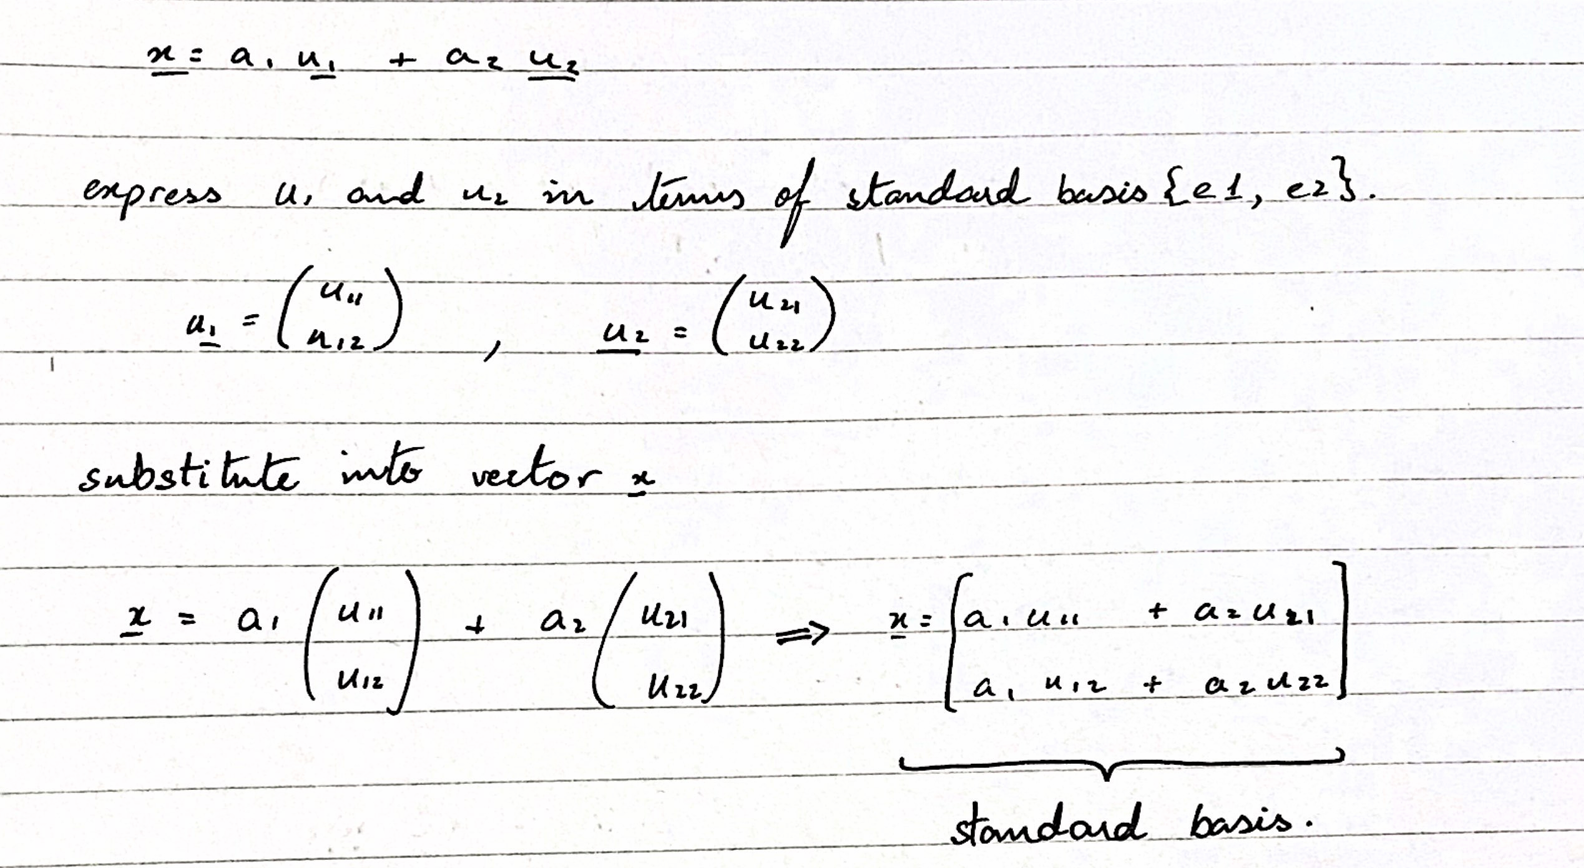 x = a1 u1 + a2 u2
express u1 and u2 in terms of standard basis {e1, e2}.
u1 = (u11 u12) , u2 = (u21 u22)
substitute into vector x
x = a1 (u11 u12) + a2 (u21 u22) ⇒ x = [a1 u11 + a2 u21 a1 u12 + a2 u22]
standard basis.